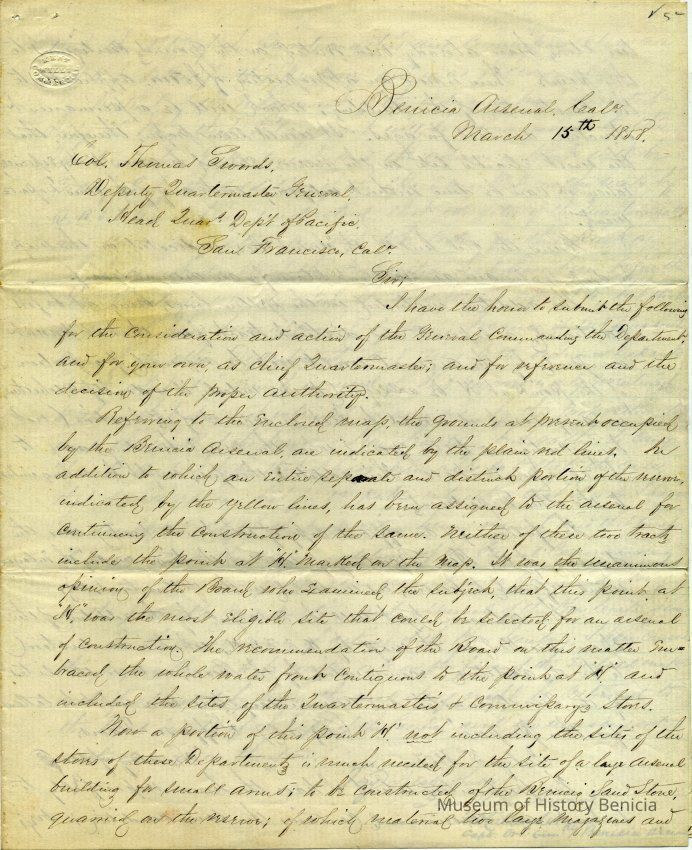 Benicia Arsenal, Cala.
March 15th 1858.
Col. Thomas Swords,
Deputy Quartermaster General,
Head Quars. Dept. of Pacific,
San Francisco, Cala.
Sir;
I have the honor to submit the following
for the consideration and action of the General Commanding the Department,
and for your own, as chief Quartermaster; and for reference and the
decision of the proper authority.
Referring to the enclosed map, the grounds at present occupied
by the Benicia Arsenal, are indicated by the plain red lines. In
addition to which an entire separate and distinct portion of the reserve,
indicated by the yellow lines, has been assigned to the arsenal for
continuing the construction of the same. Neither of these two tracts
include the point at "H" marked on the map. It was the unanimous
opinion of the Board who examined the subject, that this point at
"H," was the most eligible site that could be selected for an arsenal
of construction. The recommendation of the Board on this matter em=
braced the whole water front contiguous to the point at "H" and
included the sites of the Quartermaster's & Commissary's Stores.
Now a portion of this point "H," not including the sites of the
stores of these Departments is much needed for the site of a large Arsenal
building for small arms; to be constructed of the Benicia Sand Stone,
quarried on the reserve; of which material two large magazines and
Museum of History Benicia